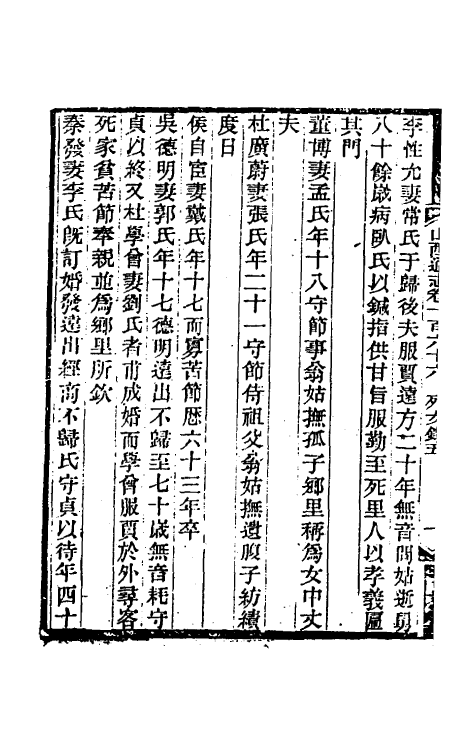 李性尤妻常氏于歸後夫服賈遠方二十年無音問姑逝舅
八十餘歲病臥氏以鍼指供甘旨服勤至死里人以孝義匾
其門
董博妻孟氏年十八守節事翁姑撫孤子鄉里稱爲女中丈
夫
杜廣蔚妻張氏年二十一守節侍祖父翁姑撫遺腹子紡績
度日
侯自宦妻戴氏年十七而寡苦節歷六十三年卒
吳德明妻郭氏年十七德明遠出不歸至七十歲無音耗守
貞以終又杜學曾妻劉氏者甫成婚而學曾服賈於外尋客
死家貧苦節奉親並爲鄉里所欽
秦發妻李氏旣訂婚發遠出經商不歸氏守貞以待年四十
山西通志卷一百六十六 列女錄五